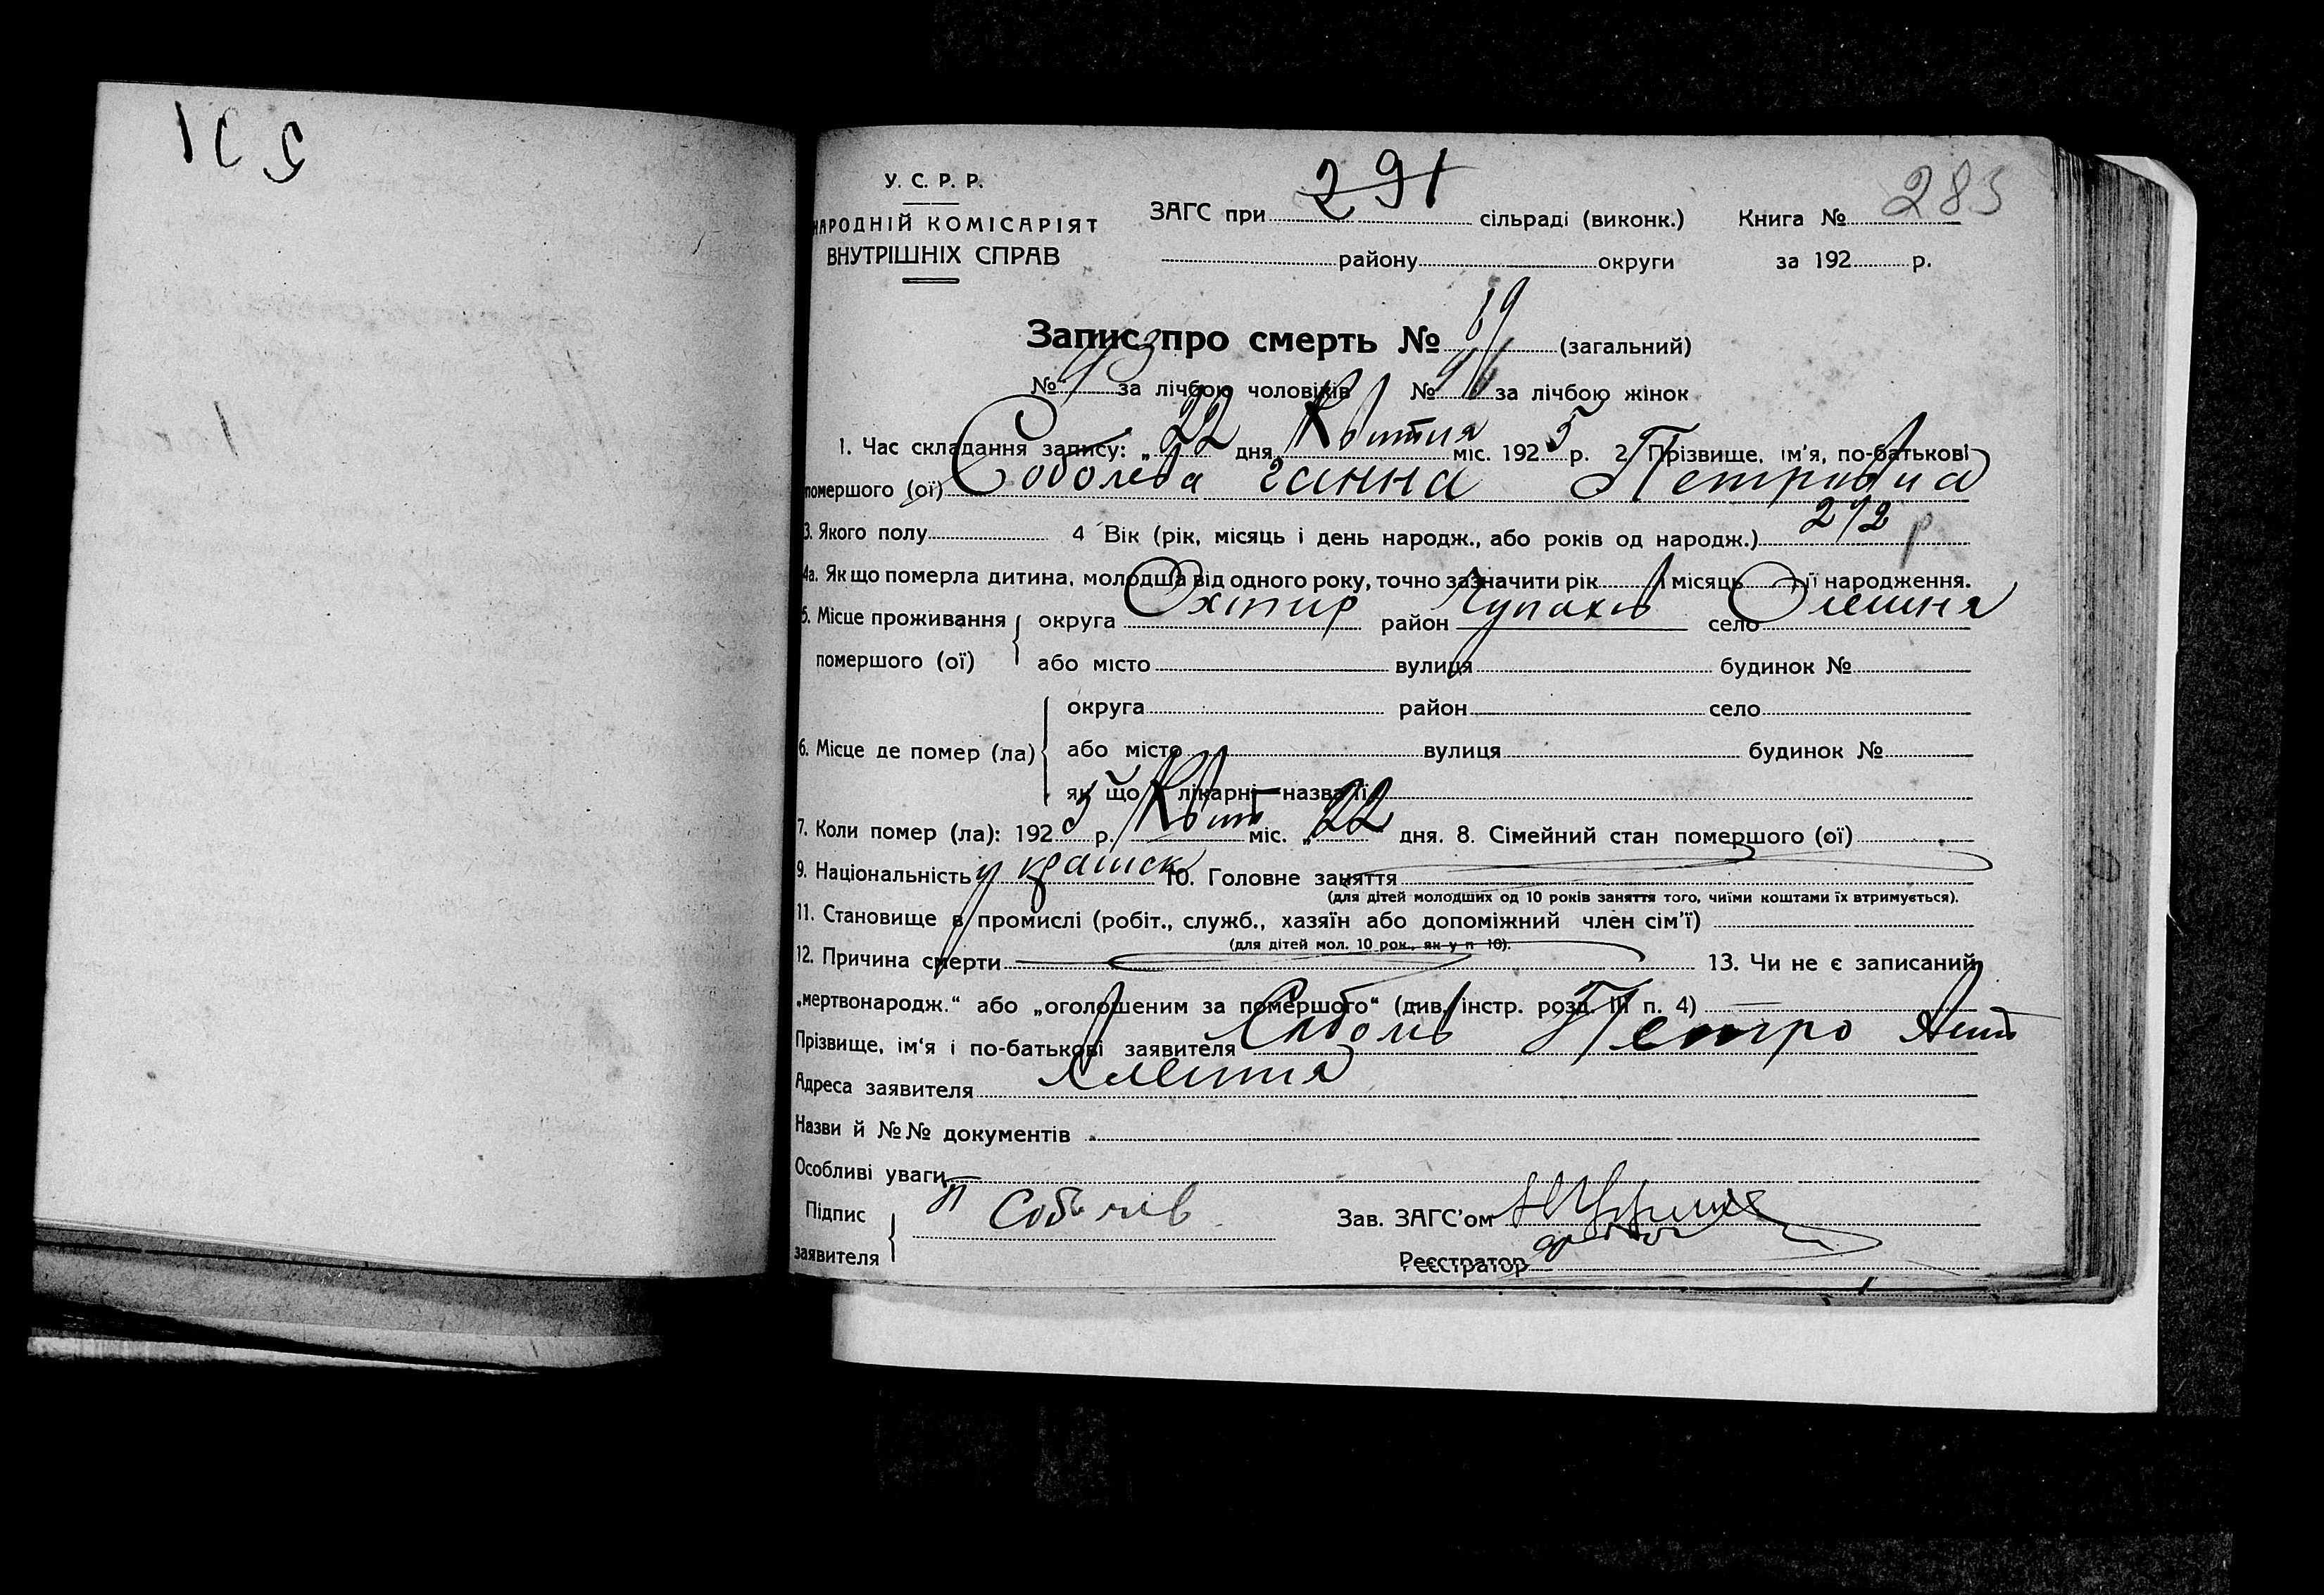 У. С. Р. Р.
НАРОДНІЙ КОМІСАРІЯТ
ВНУТРІШНІХ СПРАВ
ЗАГС при 291 сільраді (виконк.) Книга № 283
району округи за 192 р.
Запис про смерть № 89 (загальний)
№ 43 за лічбою чоловіків № 46 за лічбою жінок
1. Час складання запису: „22 дня Квітня міс. 1925 р. 2 Прізвище, ім'я, по-батькові
помершого (ої) Соболева Ганна Петрівна
3. Якого полу 4 Вік (рік, місяць і день народж., або років од народж.) р
4а. Якщо померла дитина, молодша від одного року, точно зазначити рік і місяць її народження.
5. Місце проживання округа Охтир район Чупахів село Олешня
помершого (ої) або місто вулиця будинок №
округа район село
6. Місце де помер (ла) або місто вулиця будинок №
як що лікарні—назва її
7. Коли помер (ла): 1925 р. Квіт міс. „22 дня. 8. Сімейний стан помершого (ої)
9. Національність україиск 10. Головне заняття
(для дітей молодших од 10 років заняття того, чиїми коштами їх втримується).
11. Становище в промислі (робіт., служб., хазяїн або допоміжний член сім'ї)
(для дітей мол. 10 рок., як у п 10).
12. Причина смерти 13. Чи не є записаний
„мертвонародж.“ або „оголошеним за помершого“ (див. інстр. розд. III п. 4)
Прізвище, ім'я і по-батькові заявителя Соболів Петро
Адреса заявителя Олешня
Назви й №№ документів
Особливі уваги
Підпис П Соболів Зав. ЗАГС'ом
заявителя Реєстратор